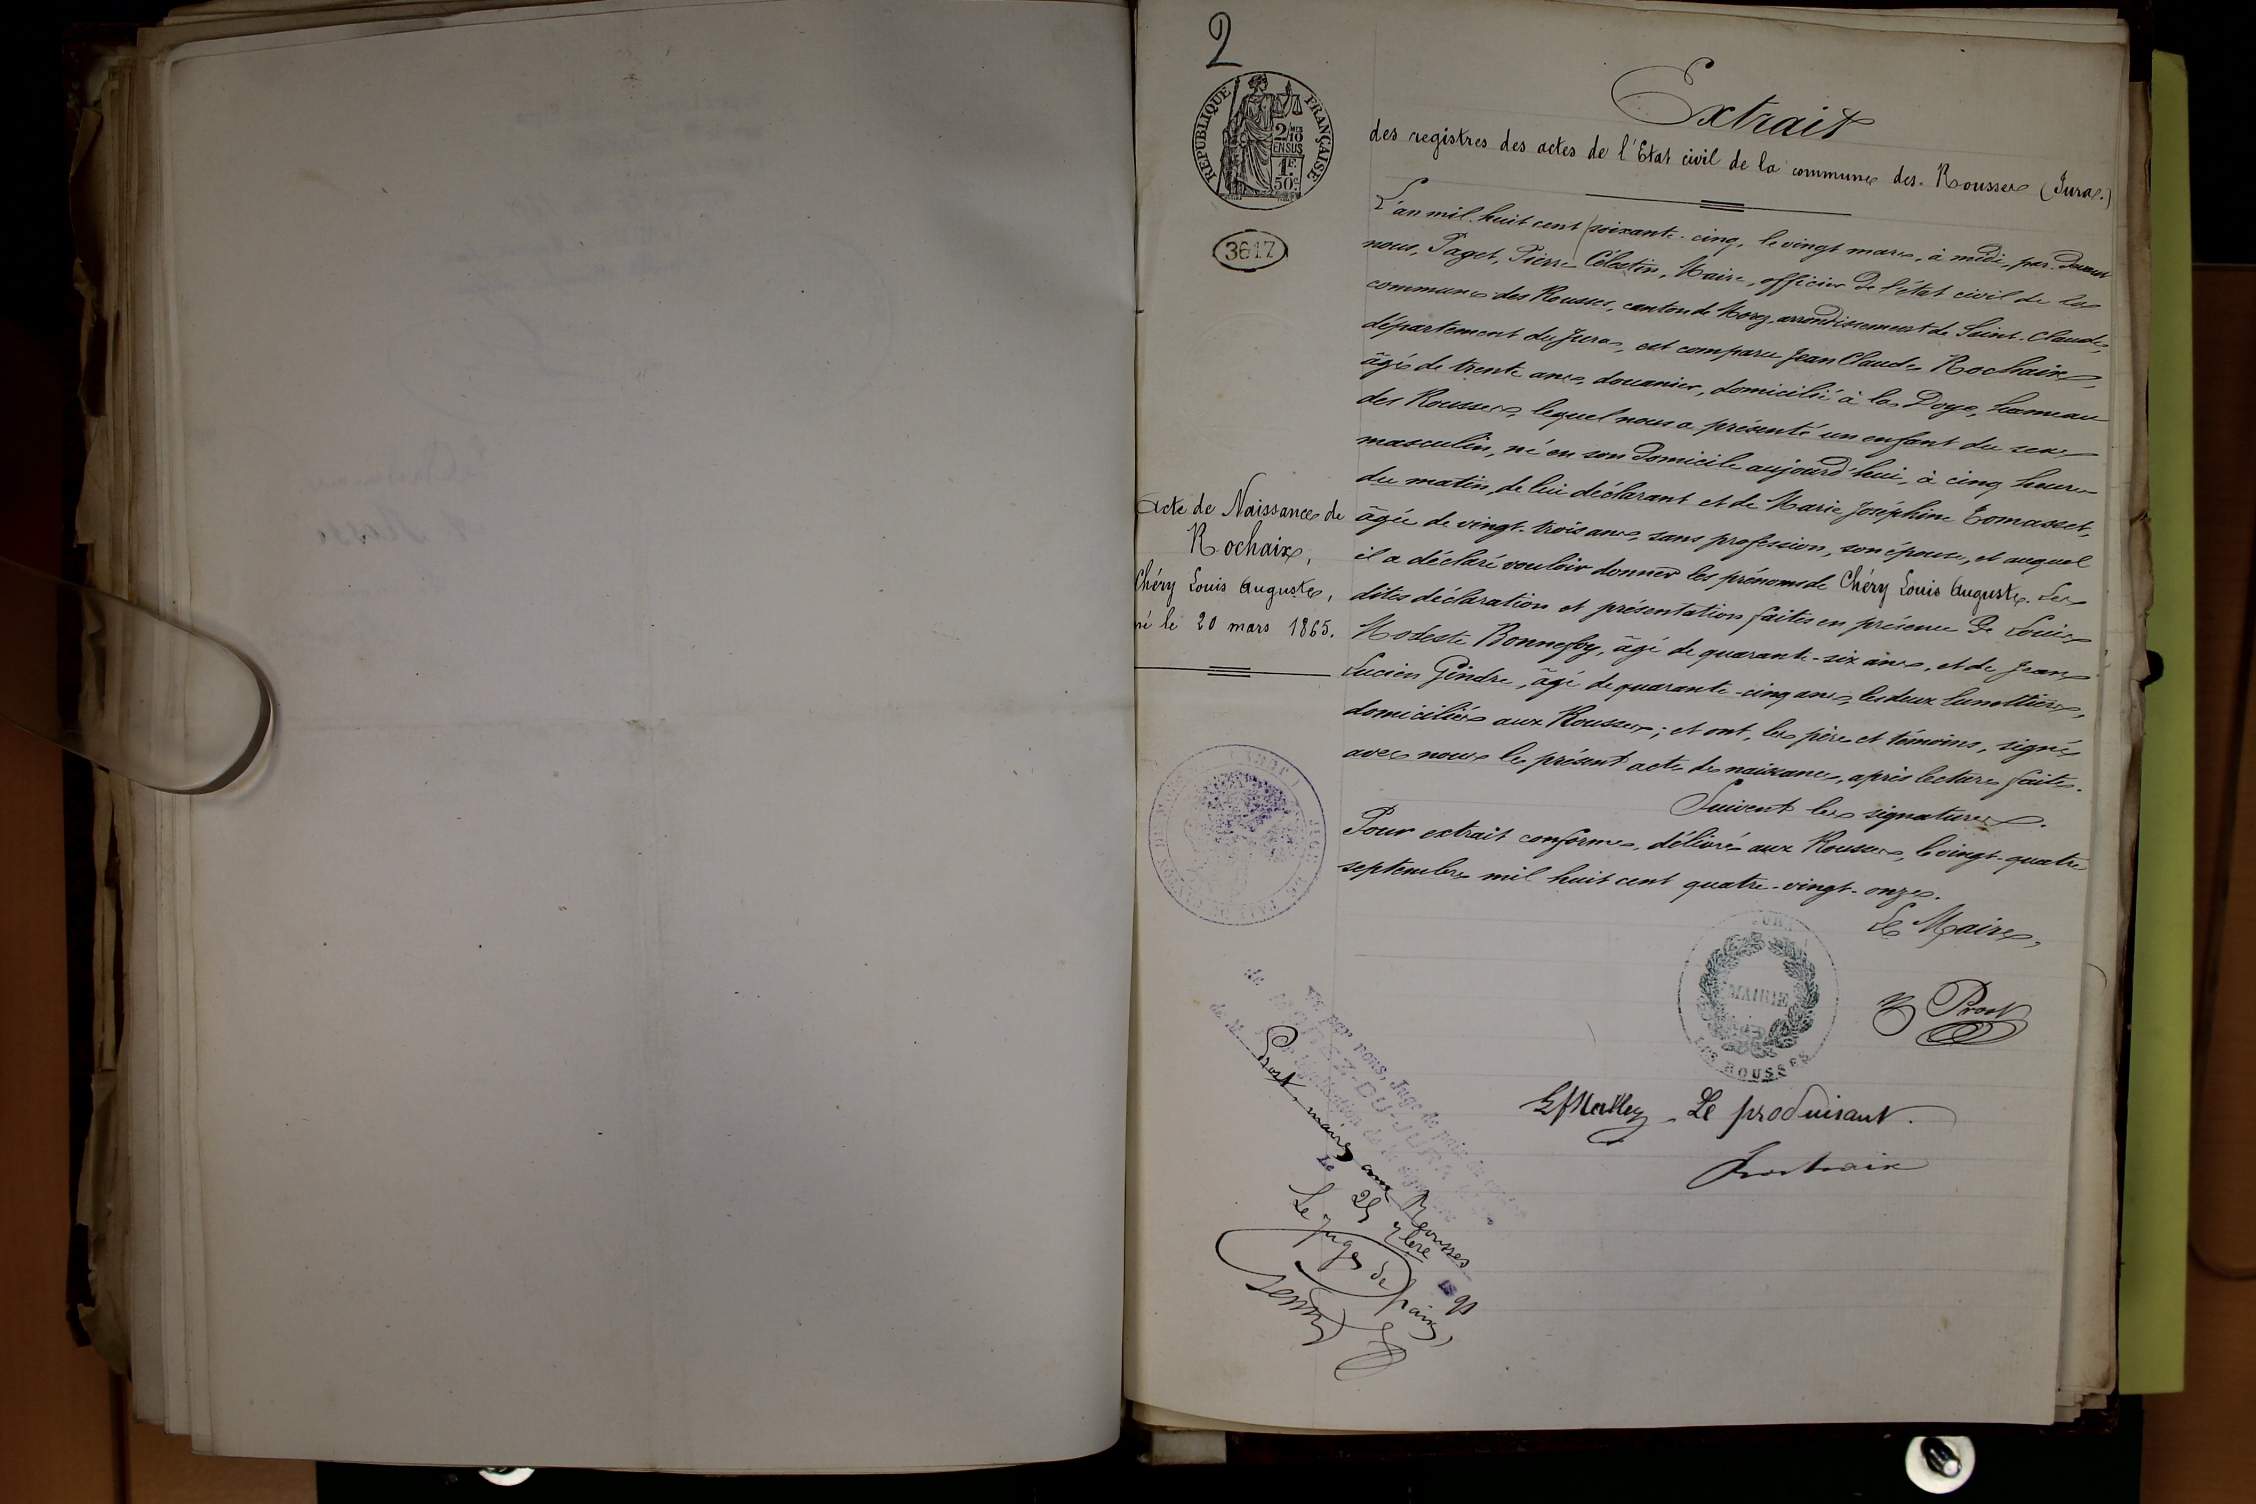 2
RÉPUBLIQUE FRANÇAISE
2/10 EN SUS
1F.
50c.
3617
Extrait
des registres des actes de l'Etat civil de la commune des Rousses (Jura.)
L'an mil huit cent soixante-cinq, le vingt mars, à midi, par devant
nous, Paget, Pierre Célestin, Maire, officier de l'état civil de la
commune des Rousses, canton de Morez, arrondissement de Saint-Claude,
département du Jura, est comparu Jean Claude Rochaix,
âgé de trente ans, douanier, domicilié à la Doye, hameau
des Rousses, lequel nous a présenté un enfant du sexe
masculin, né en son domicile aujourd'hui, à cinq heures
du matin, de lui déclarant et de Marie Joséphine Tomasset,
âgée de vingt-trois ans, sans profession, son épouse, et auquel
il a déclaré vouloir donner les prénoms de Chéry Louis Auguste. Les
dites déclaration et présentation faites en présence de Louis
Modeste Bonnefoy, âgé de quarante-six ans, et de Jean
Lucien Gindre, âgé de quarante-cinq ans, les deux lunettiers,
domiciliés aux Rousses; et ont, les père et témoins, signé
avec nous le présent acte de naissance, après lecture faite.
Suivent les signatures.
Pour extrait conforme, délivré aux Rousses, le vingt-quatre
septembre mil huit cent quatre-vingt-onze.
Le Maire,
Prost
Acte de Naissance de
Rochaix,
Chéry Louis Auguste,
né le 20 mars 1865.
MAIRIE
LES ROUSSES
JURA
Le produisant.
Rochaix
Vu par nous, Juge de paix du canton
de MOREZ-DU-JURA
pour légalisation de la signature
de M. Prost, maire aux Rousses
Le 25 7bre 1891
Le juge de paix,